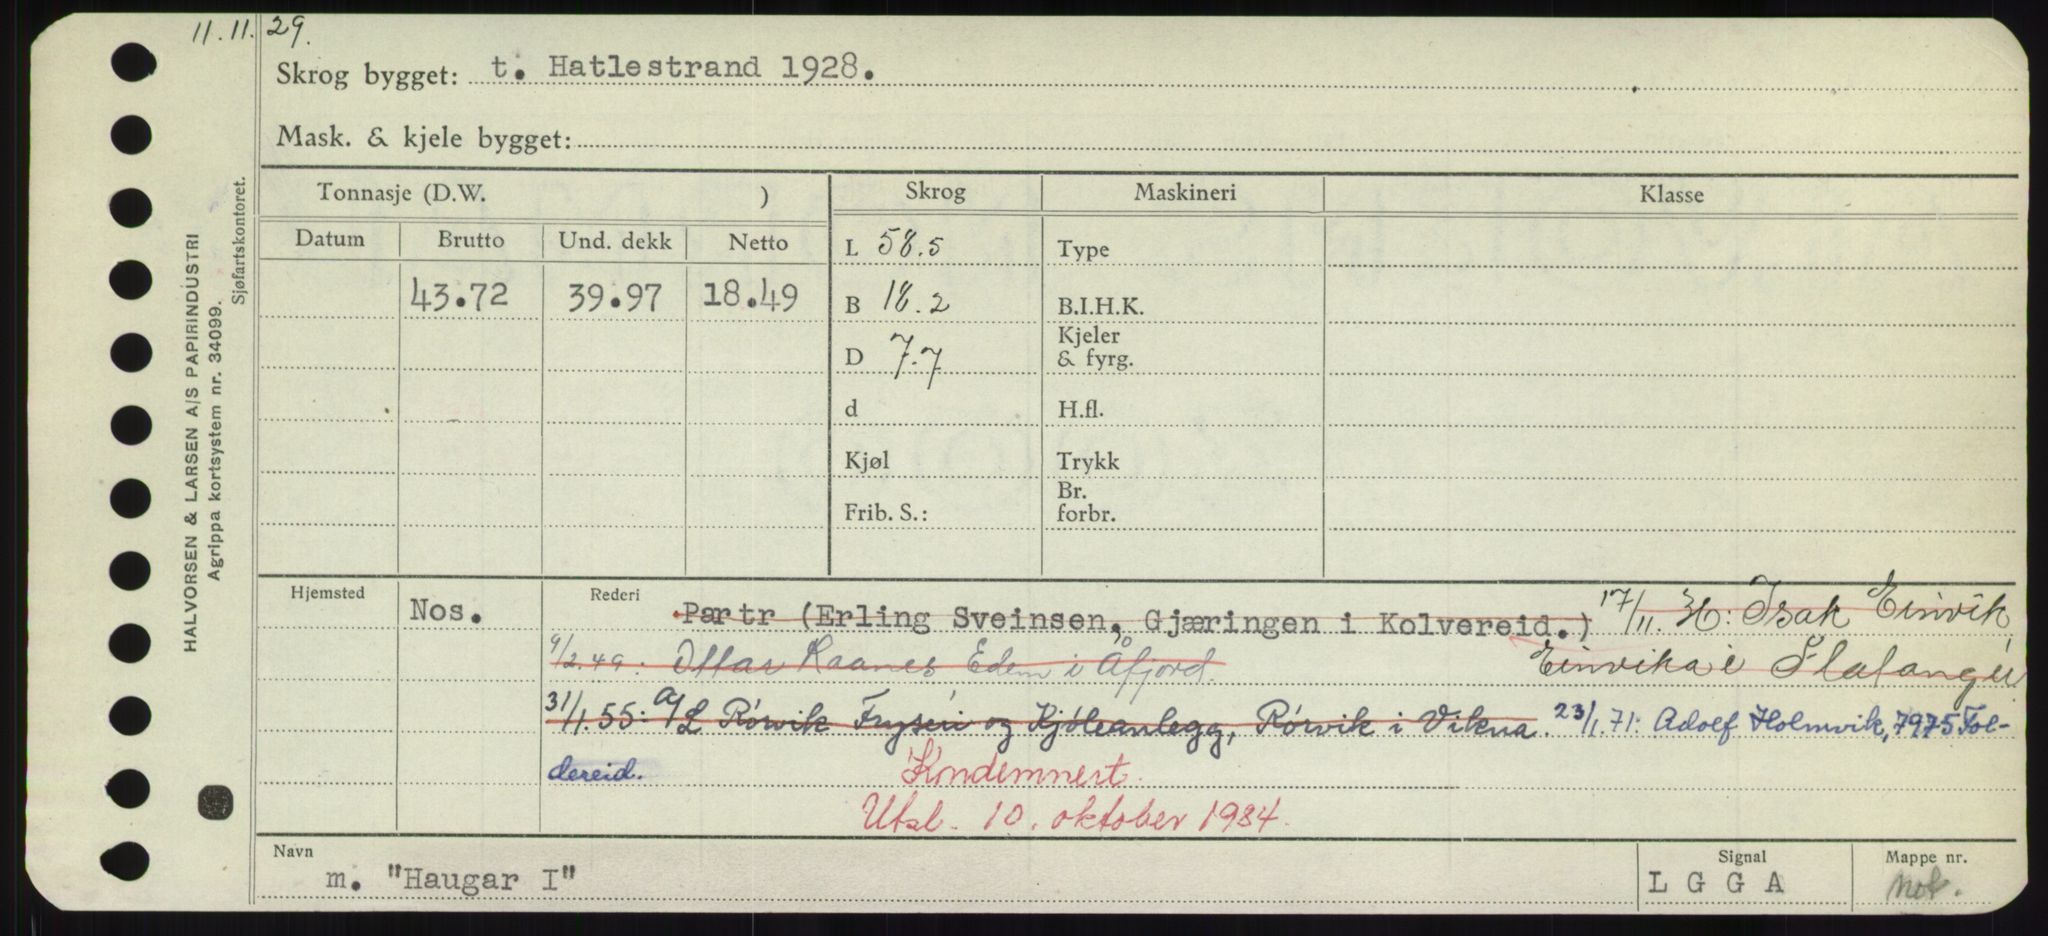 11.11.29.
Skrog bygget: t. Hatlestrand 1928.
Mask. & kjele bygget:
Tonnasje (D.W. ) Skrog Maskineri Klasse
Datum Brutto Und. dekk Netto L 58.5 Type
43.72 39.97 18.49 B 18.2 B.I.H.K.
D 7.7 Kjeler & fyrg.
d H.fl.
Kjøl Trykk
Frib. S.: Br. forbr.
Hjemsted Nos. Rederi Partr (Erling Sveinsen, Gjæringen i Kolvereid.) 17/11. : Isak Einvik,
Einvika i Flatanger
9/2.49: Ottar Raanes Eden i Åfjord.
31/1.55: A/L Rórvik Fryseri og Kjóleanlegg, Rórvik i Vikna. 23/1.71: Adolf Holmvik, 7975 Fol-
dereid.
Kondemnert.
Utsl. 10. oktober 1984.
Navn m. "Haugar I" Signal L G G A Mappe nr. not.
HALVORSEN & LARSEN A/S PAPIRINDUSTRI
Agrippa kortsystem nr. 34099.
Sjøfartskontoret.